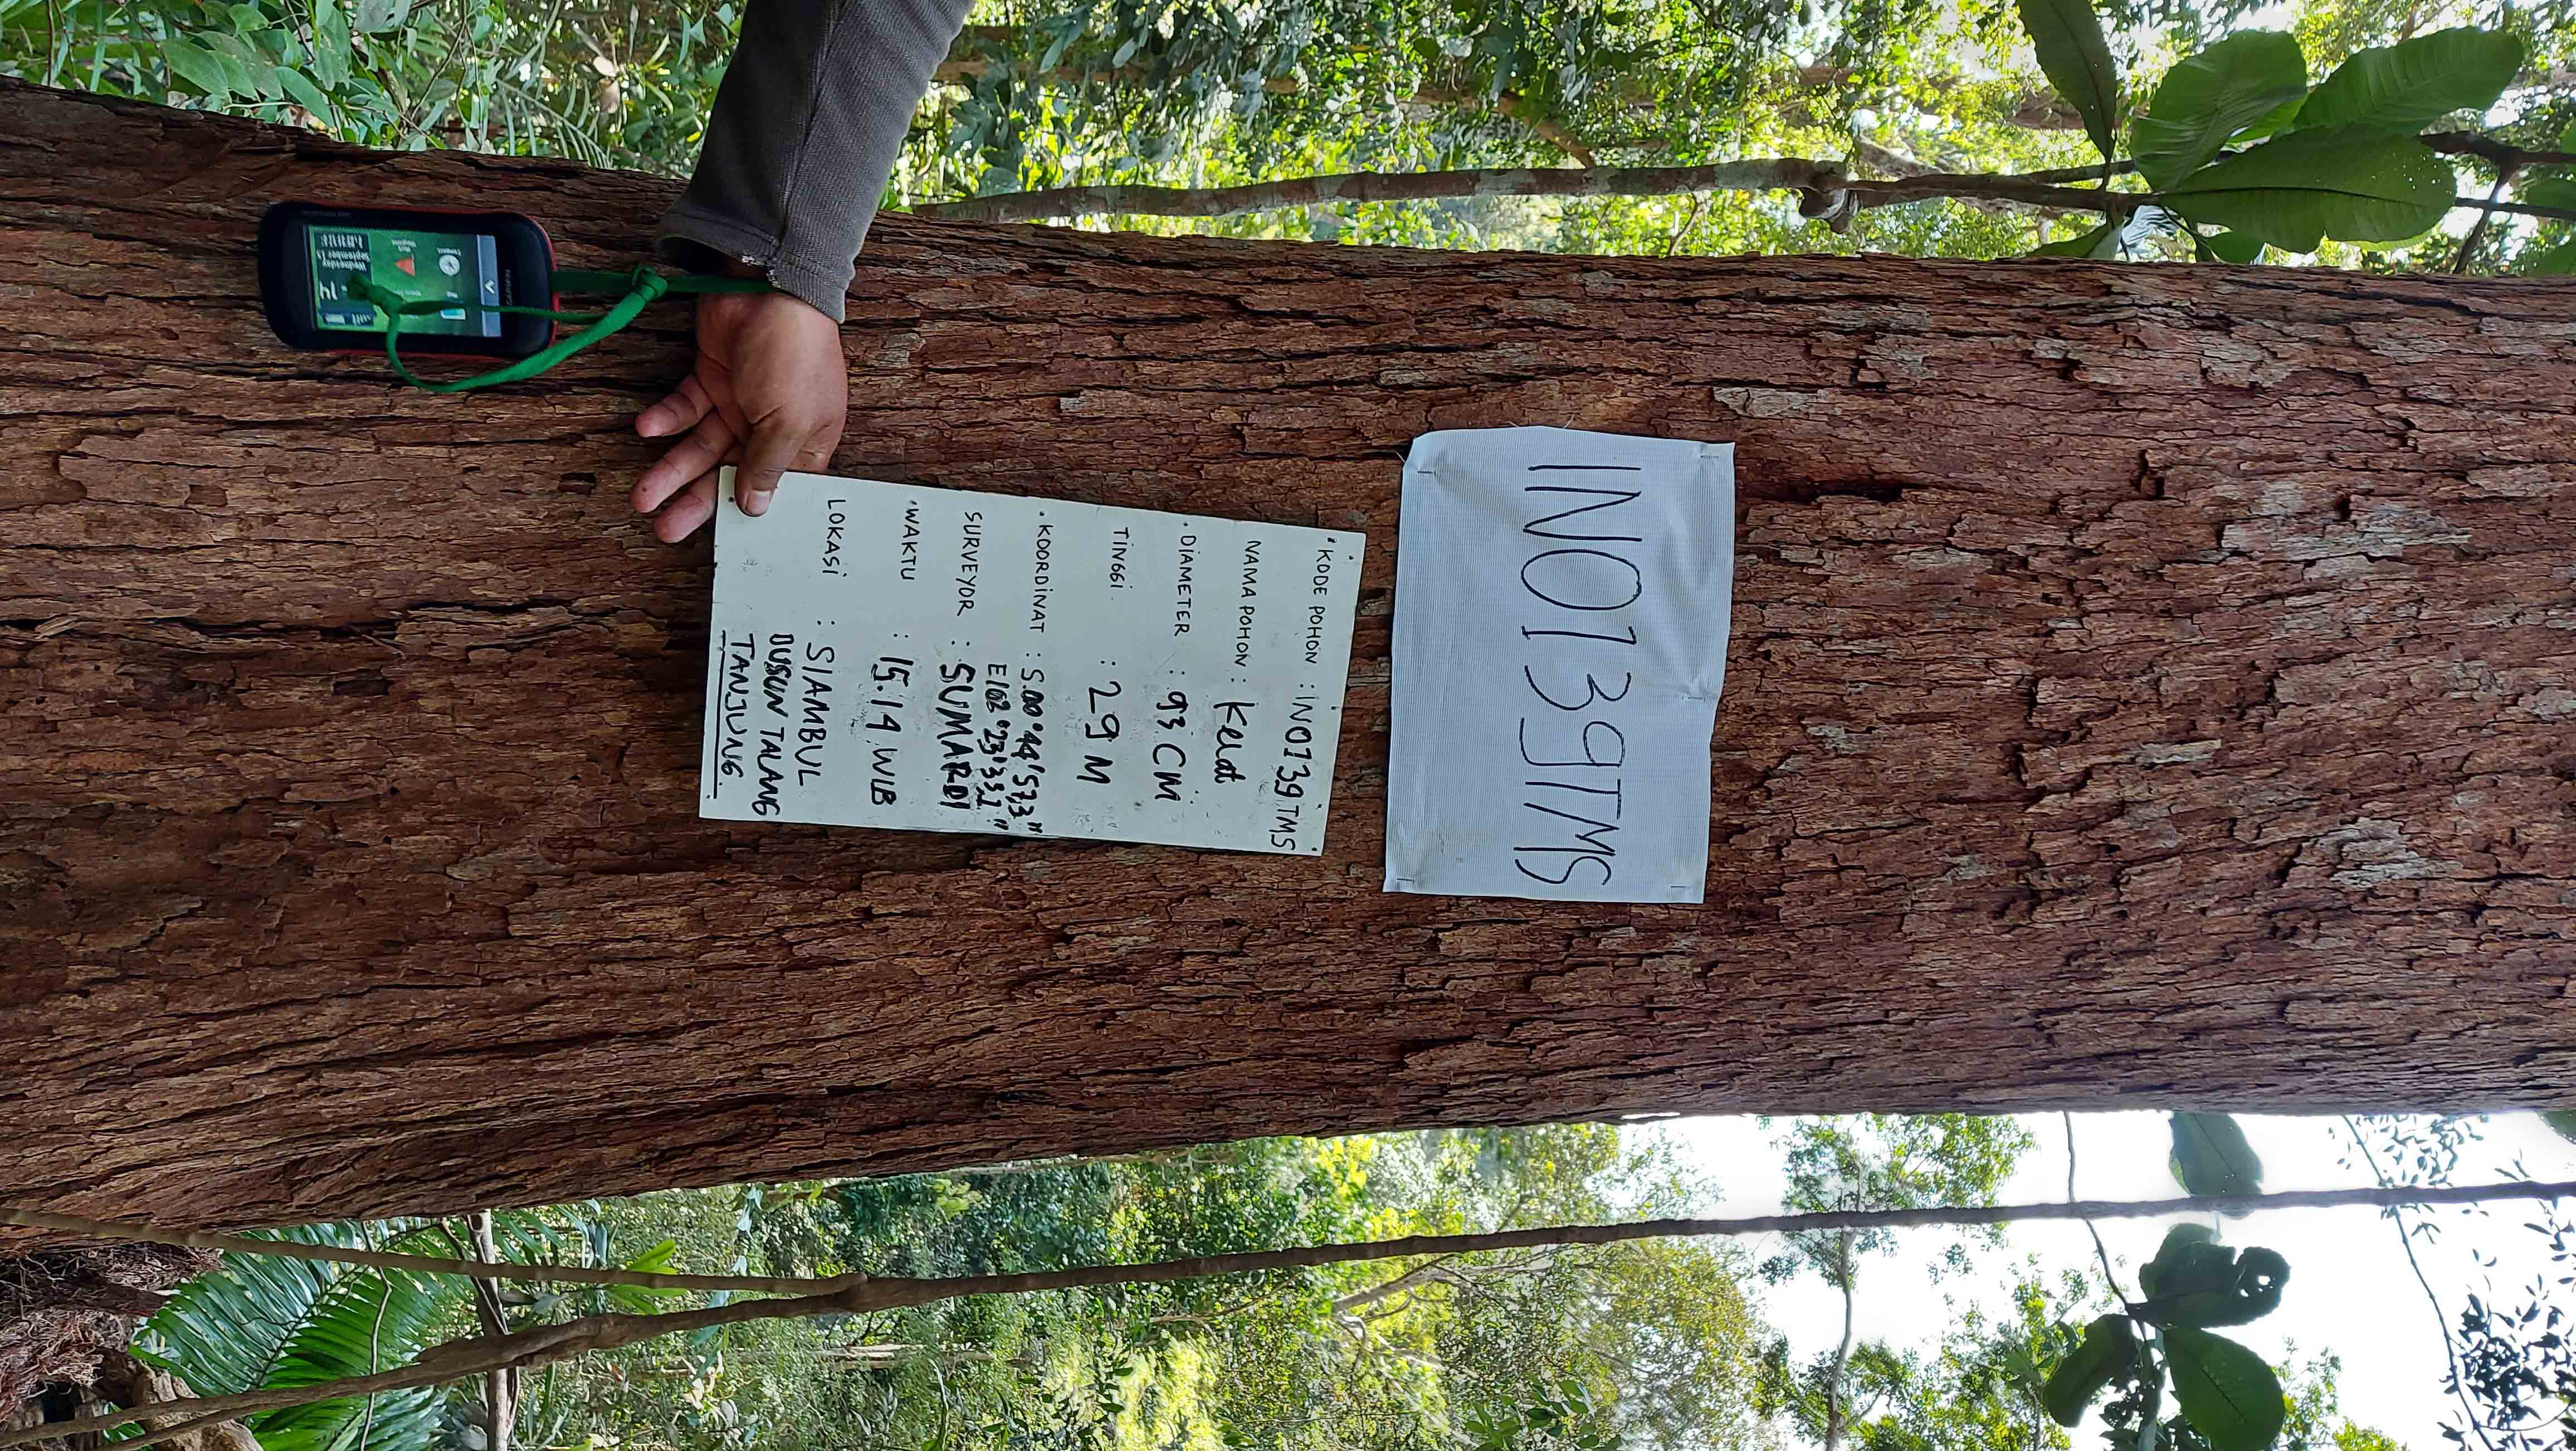 INO139TMS
KODE POHON : INO139 TMS
NAMA POHON : Kelat
DIAMETER : 93 CM
TINGGI : 29 M
KOORDINAT : S.00°44'57,3"
E102°23'33,1"
SURVEYOR : SUMARDI
WAKTU : 15.14 WIB
LOKASI : SIAMBUL
DUSUN TALANG
TANJUNG.
GARMIN